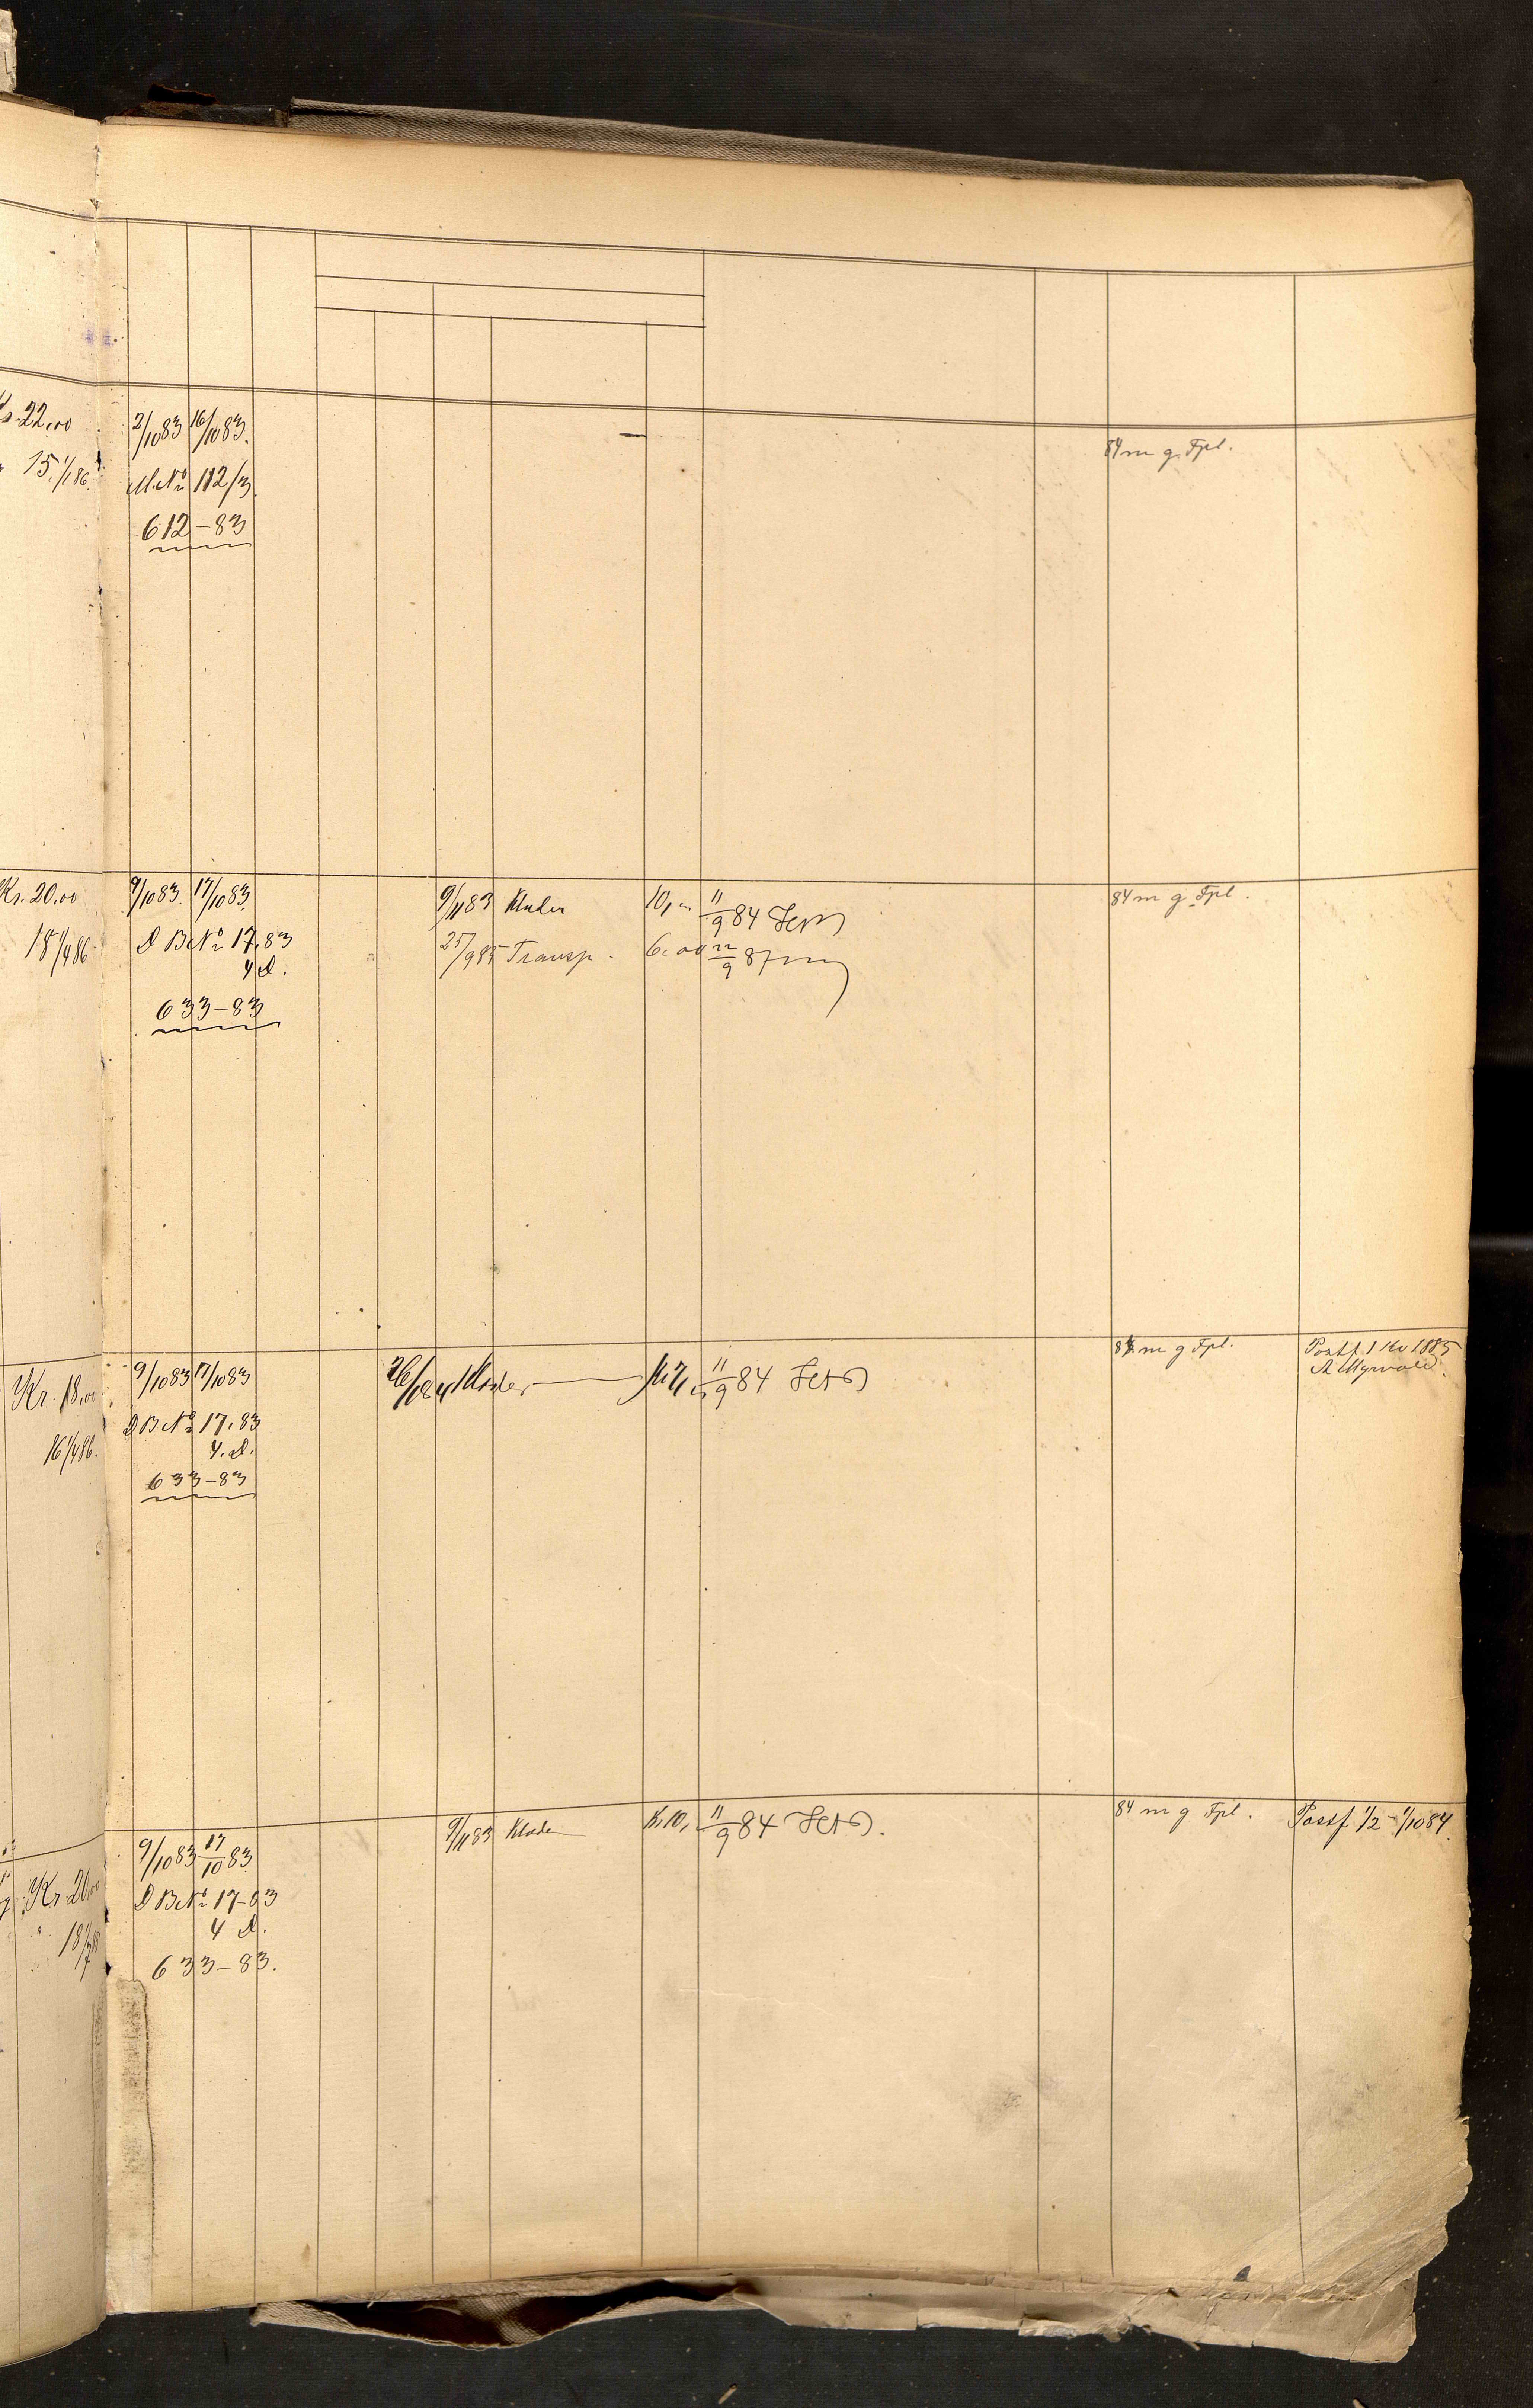 22,00 2/10 83 16/10 83. 84 m g. Fpl.
15, 1/1 86. M. No 112/3.
612-83
Kr. 20,00 9/10 83. 17/10 83. 9/11 83 Klæder 10, 11/9 84 84 m g. Fpl.
18 1/4 86. D B No 17,83 25/9 85 Transp. 6,00 22/9 87
4 D.
633-83
Kr. 18,00 9/10 83 17/10 83 26/1 84 Klæder 11/9 84 84 m g Fpl. Postf. 1 Kv 1885
16 1/4 86. D B No 17,83 A Myrvold.
4. D.
633-83
9/10 83 17/10 83 9/11 83 Klæder K. 10, 11/9 84 84 m g Fpl. Postf. 1/2 - 1/10 84.
Kr. 20,00 D B No 17-83
18 4 D.
633-83.